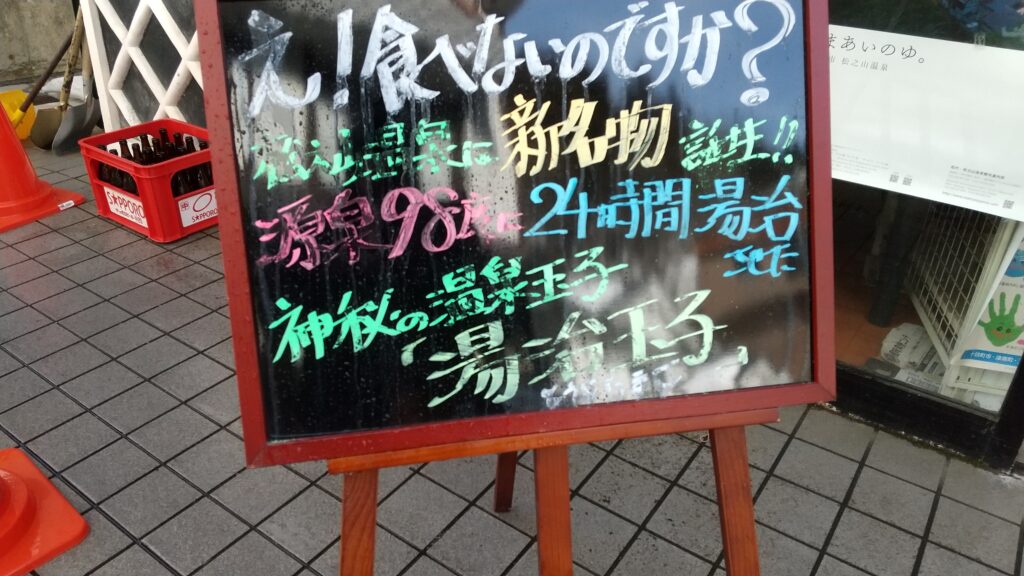 え!食べないのですか?
松之山温泉に新名物誕生!!
源泉98度に24時間湯治
した
神秘の温泉玉子
「湯治玉子」
SAPPORO
SAPPORO
まあいのゆ。
市 松之山温泉
十日町市・津南町